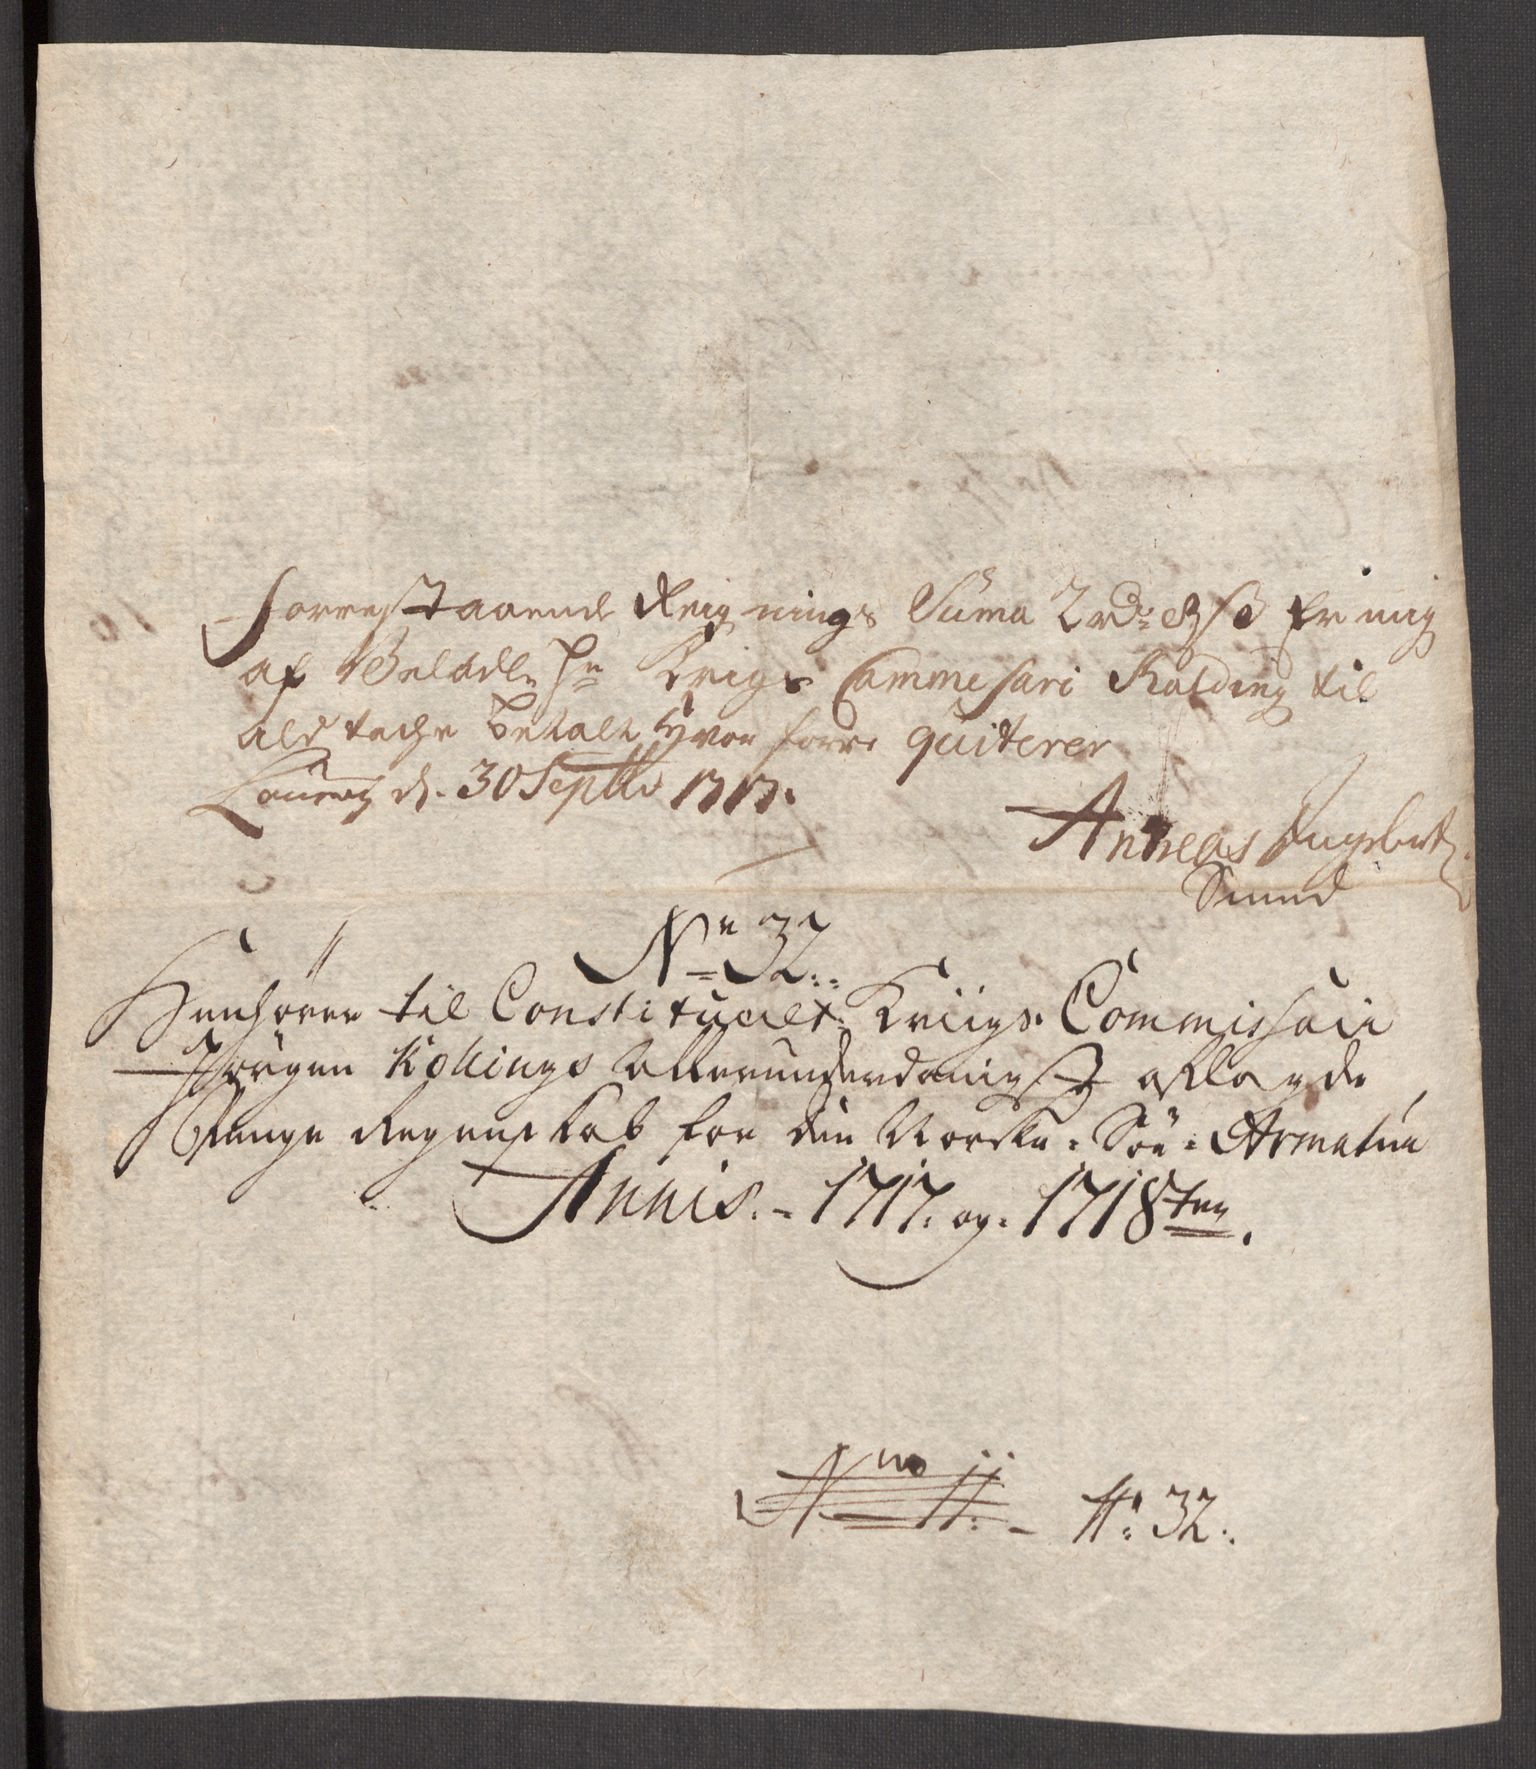 Forrestaaende Reignings Suma 2 rdr 8 s Er mig
af Veladle Hr Krigs Commesari Kolding til
ald tache betalt hvor forre quiterer
Laurwig d. 30 Septbr 1717.
Andreas Engelbret
Smed
No 32.
Henhører til Constituerlt. Kriigs. Commissair
Jørgen Kollings allerunderdanigst aflagde
Penge Regenskab for den Norske Söe Armatur
Annis. 1717. og. 1718ten.
Nro 11. No 32.